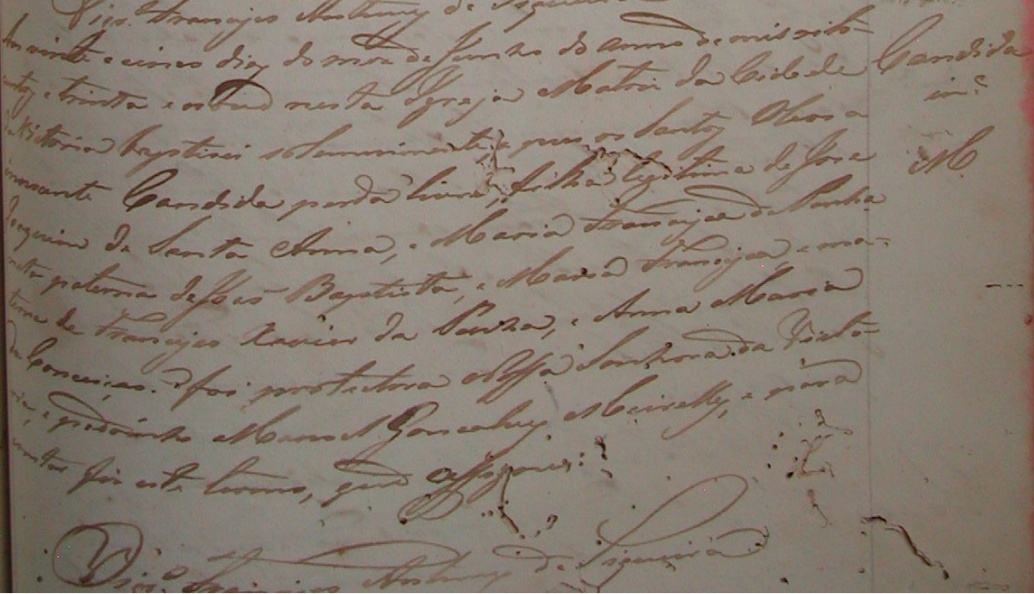 Vigr.o Francisco Antunes de Siqueira
Aos vinte e cinco dias do mez de Junho do anno de mil oito-
centos e trinta e oito nesta Igreja Matriz da Cidade
da Victoria baptisei solemnemente, e puz os Santos Oleos a
innocente Candida parda livre, filha legitima de Jose
Joaquim de Santa Anna, e Maria Francisca da Penha
neta paterna de Joze Baptista, e Maria Francisca e ma-
terna de Francisco Xavier da Penha, e Anna Maria
da Conceição: foi protectora Nossa Senhora da Victo-
ria, e padrinho Manoel Gonçalves Meirelles, e para
constar fiz este termo, que assignei:
Vigr.o Francisco Antunes de Siqueira
Candida
in.e
M